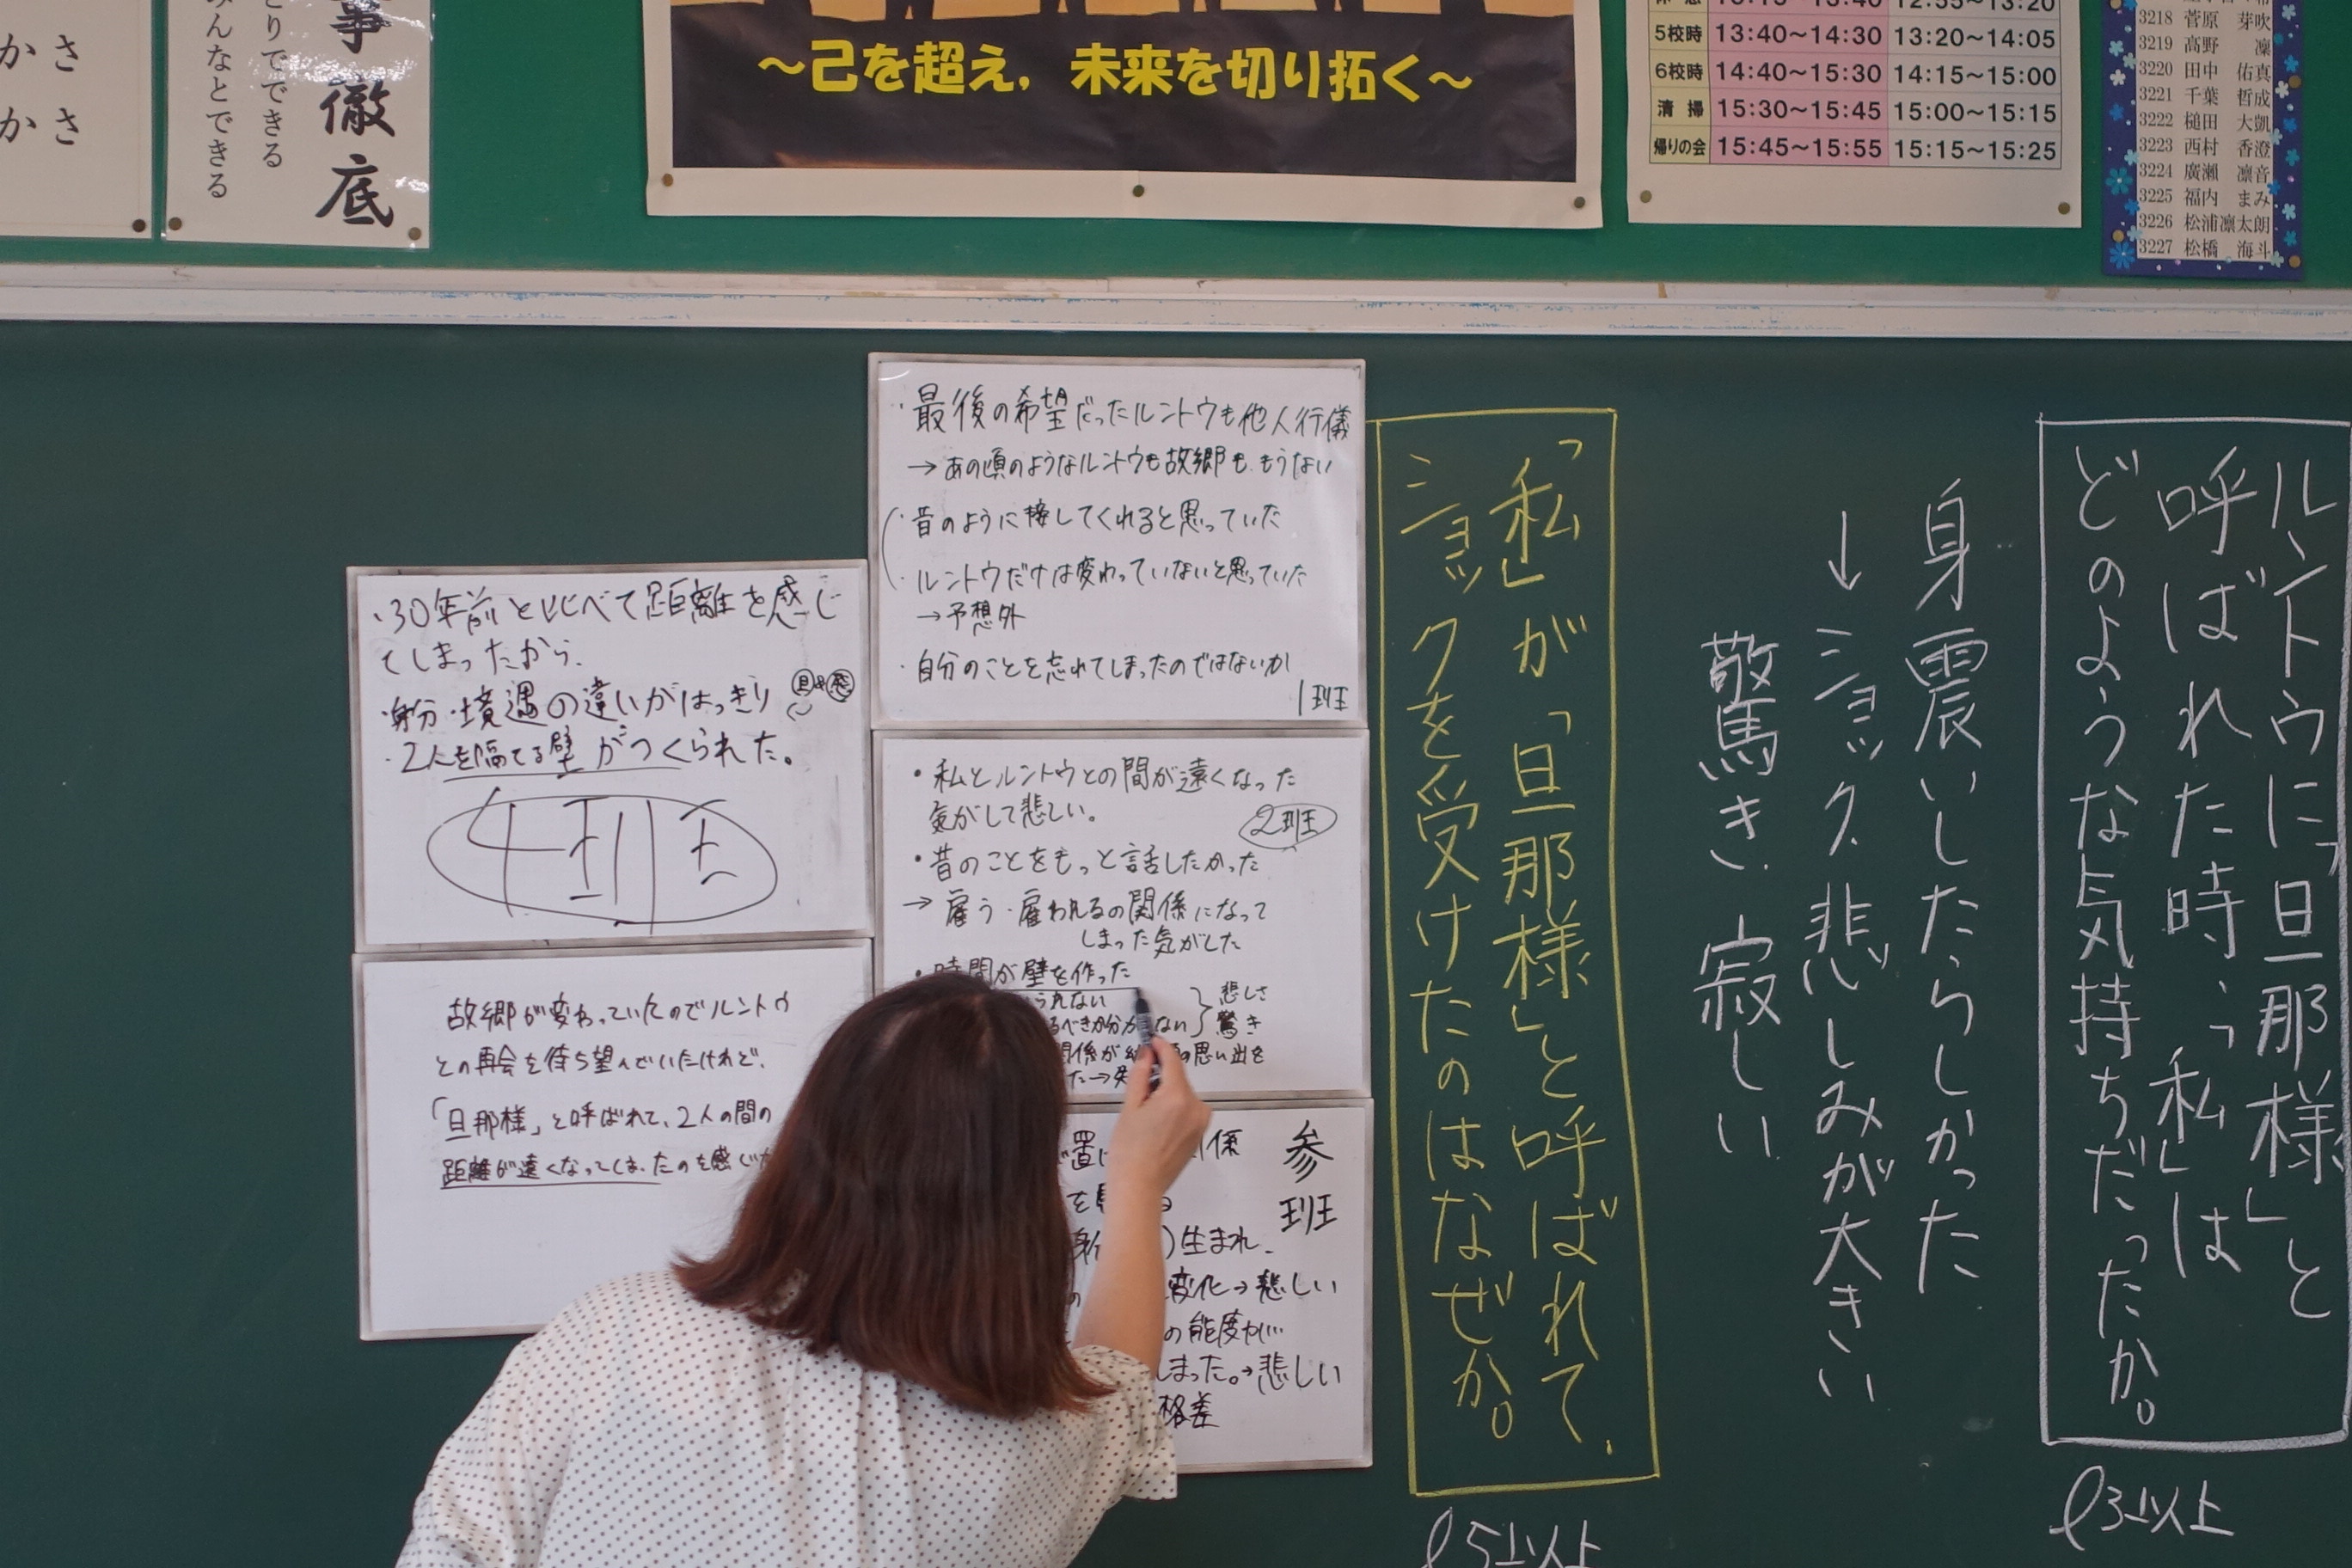 かさ
かさ
事徹底
とりでできる
みんなとできる
～己を超え，未来を切り拓く～
5校時 13:40～14:30 13:20～14:05
6校時 14:40～15:30 14:15～15:00
清掃 15:30～15:45 15:00～15:15
帰りの会 15:45～15:55 15:15～15:25
3218 菅原 芽吹
3219 高野 凜
3220 田中 佑真
3221 千葉 哲成
3222 槌田 大凱
3223 西村 香澄
3224 廣瀬 凛音
3225 福内 まみ
3226 松浦凛太朗
3227 松橋 海斗
ルントウに「旦那様」と
呼ばれた時、「私」は
どのような気持ちだったか。
ℓ3以上
身震いしたらしかった
↓ショック.悲しみが大きい
驚き.寂しい
「私」が「旦那様」と呼ばれて、
ショックを受けたのはなぜか。
ℓ5以上
・最後の希望だったルントウも他人行儀
→あの頃のようなルントウも故郷も、もうない
・昔のように接してくれると思っていた
・ルントウだけは変わっていないと思っていた
→予想外
・自分のことを忘れてしまったのではないか
1班
・私とルントウとの間が遠くなった
気がして悲しい。
2班
・昔のことをもっと話したかった
→雇う・雇われるの関係になって
しまった気がした
・時間が壁を作った
られない
悲しさ
驚き
の思い出を
参班
係
生まれ、
変化→悲しい
の態度が…
しまった。→悲しい
格差
・30年前と比べて距離を感じ
てしまったから、
・身分・境遇の違いがはっきり
・2人を隔てる壁がつくられた。
4班
故郷が変わっていたのでルントウ
との再会を待ち望んでいたけれど、
「旦那様」と呼ばれて、2人の間の
距離が遠くなってしまったのを感じ